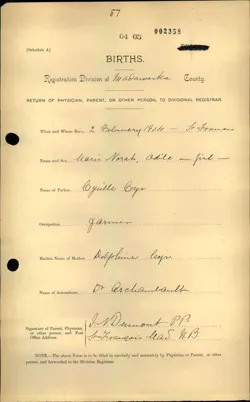 57
04 05 002358
[Schedule A.]
BIRTHS.
Registration Division of Madawaska County.
RETURN OF PHYSICIAN, PARENT, OR OTHER PERSON, TO DIVISIONAL REGISTRAR.
When and Where Born, 2 February 1904 - St Francois
Name and Sex, Marie Norah, Adile - girl -
Name of Father, Cyrille Cyr
Occupation, farmer
Maiden Name of Mother, Delphine Cyr
Name of Accoucheur, Dr Archambault
Signature of Parent, Physician, or other person, and Post Office Address. J. N Dumont P.P.
St François Mad N.B.
NOTE.—The above Form is to be filled in carefully and accurately by Physician, Parent, or other person, and forwarded to the Division Registrar.